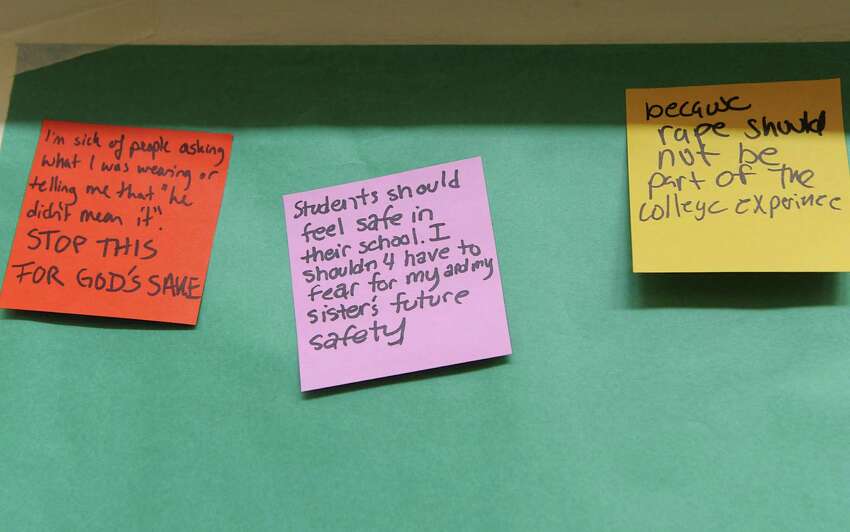 I'm sick of people asking
what I was wearing or
telling me that "he
didn't mean it".
STOP THIS
FOR GOD'S SAKE
Students should
feel safe in
their school. I
shouldn't have to
fear for my and my
sister's future
safety
because
rape should
not be
part of the
college experince